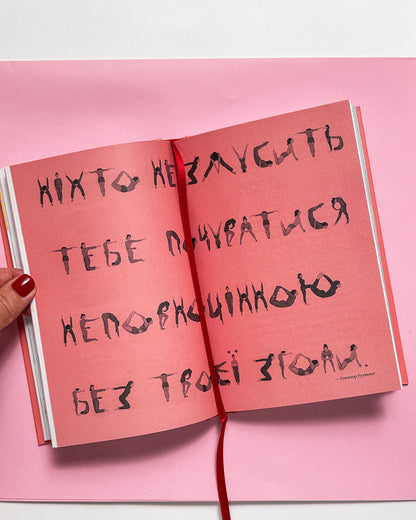 НІХТО НЕ ЗМУСИТЬ
ТЕБЕ ПОЧУВАТИСЯ
НЕПОВНОЦІННОЮ
БЕЗ ТВОЄЇ ЗГОДИ.
— Елеанор Рузвельт